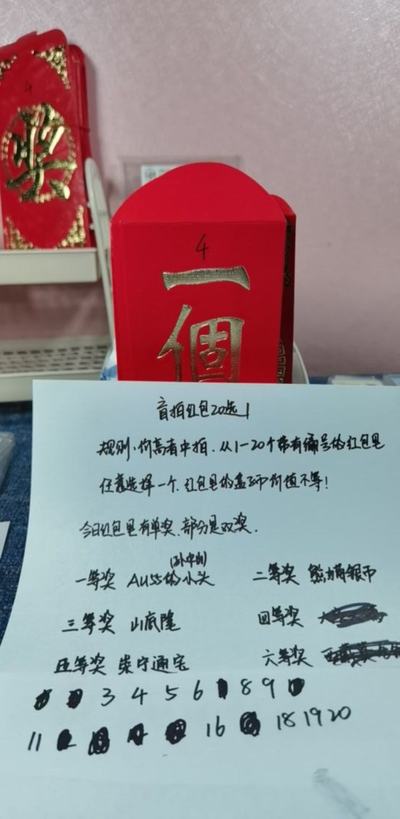 4
奖
4
一個
盲拍红包20选1
规则:价高者中拍.从1-20个带有编号的红包里
任意选择一个.红包里的盖币价值不等!
今日红包里有单奖.部分是双奖.
一等奖 AU55的小头 二等奖 熊猫银币
三等奖 山底隆 四等奖
五等奖 崇宁通宝 六等奖
3 4 5 6 8 9
11 16 18 19 20